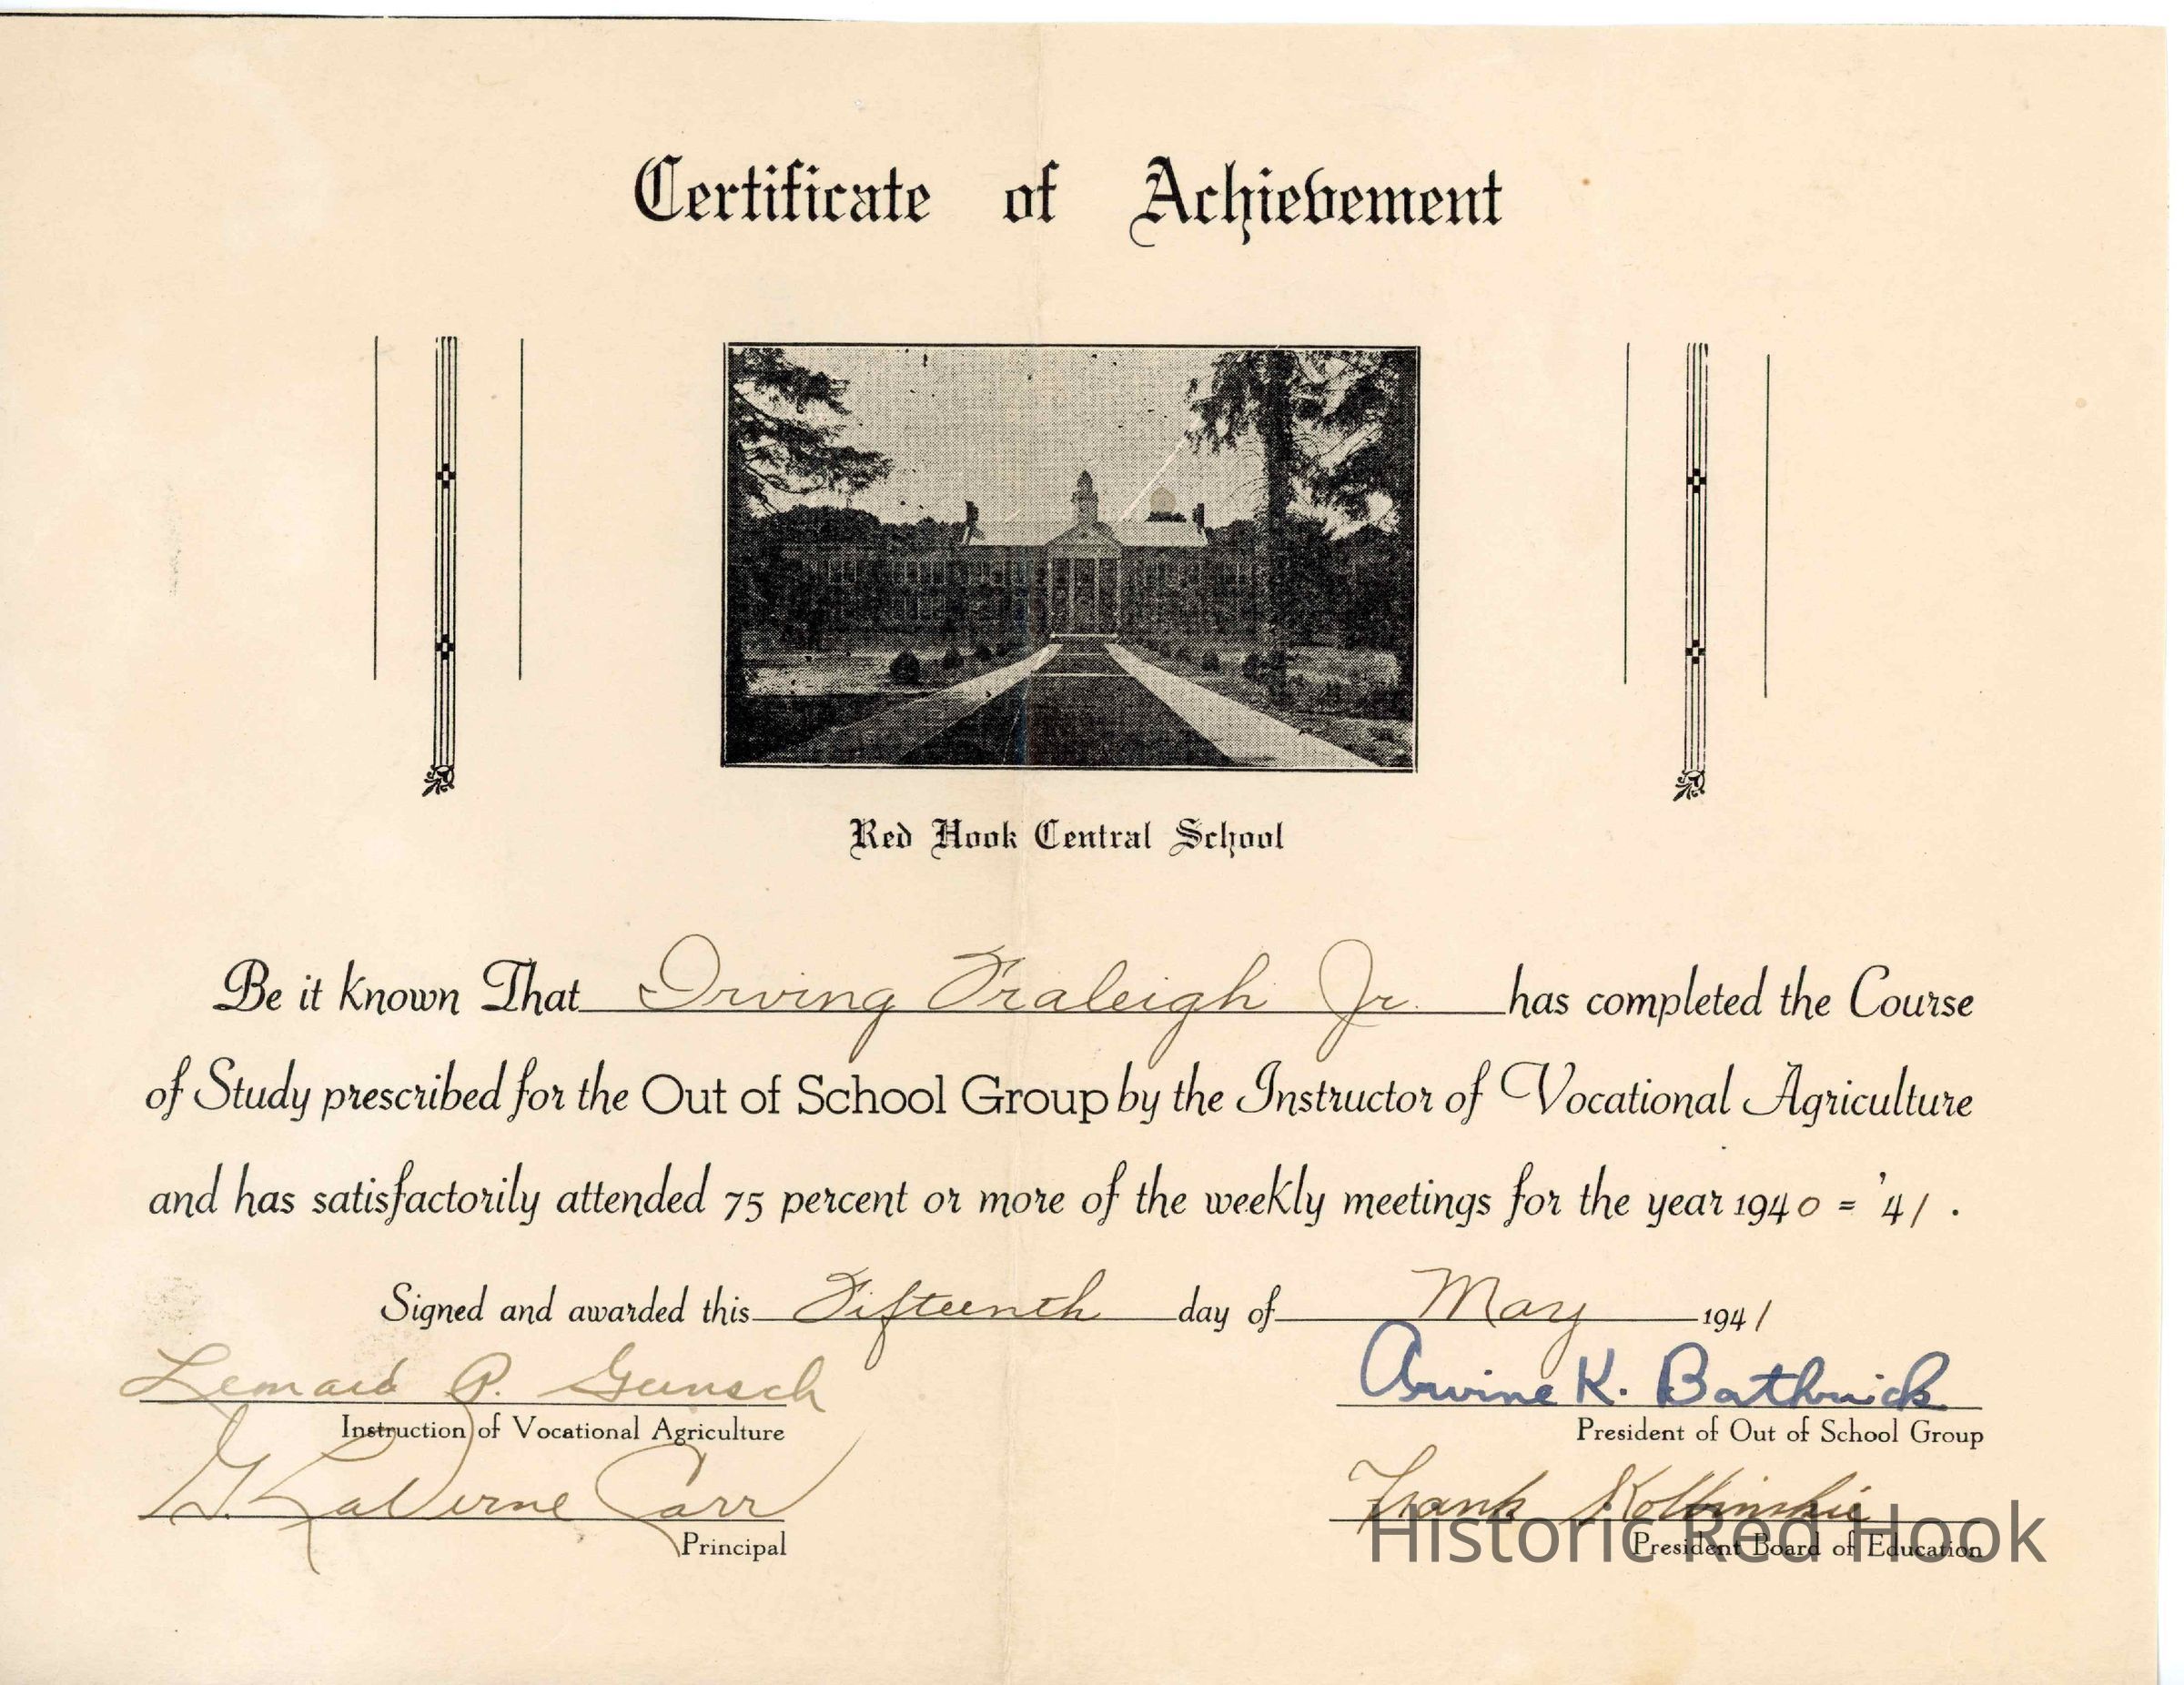 Certificate of Achievement
Red Hook Central School
Be it known That Irving Fraleigh Jr. has completed the Course
of Study prescribed for the Out of School Group by the Instructor of Vocational Agriculture
and has satisfactorily attended 75 percent or more of the weekly meetings for the year 1940 = '41.
Signed and awarded this Fifteenth day of May 1941
P.
Instruction of Vocational Agriculture
K.
President of Out of School Group
G. LaVerne Carr
Principal
Frank
President Board of Education
Historic Red Hook